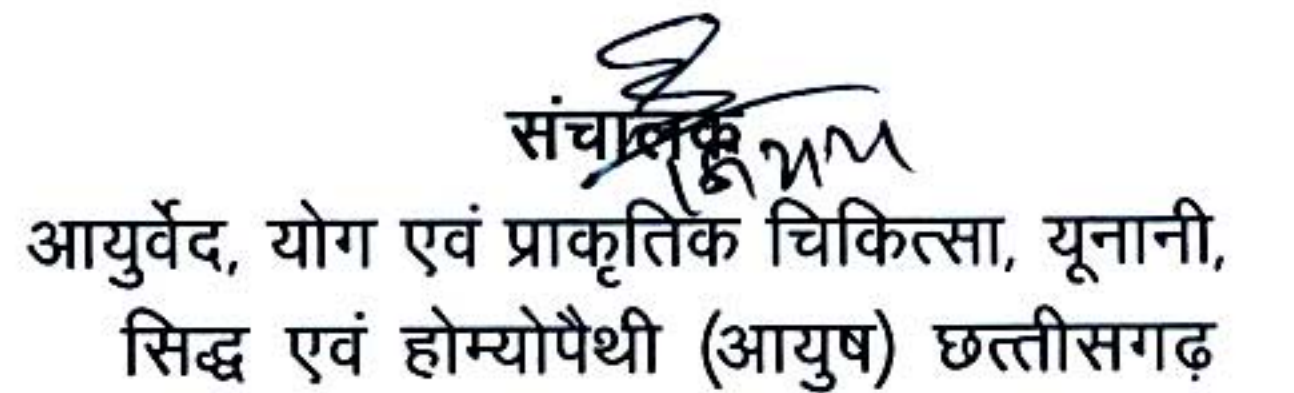 संचालक
आयुर्वेद, योग एवं प्राकृतिक चिकित्सा, यूनानी,
सिद्ध एवं होम्योपैथी (आयुष) छत्तीसगढ़